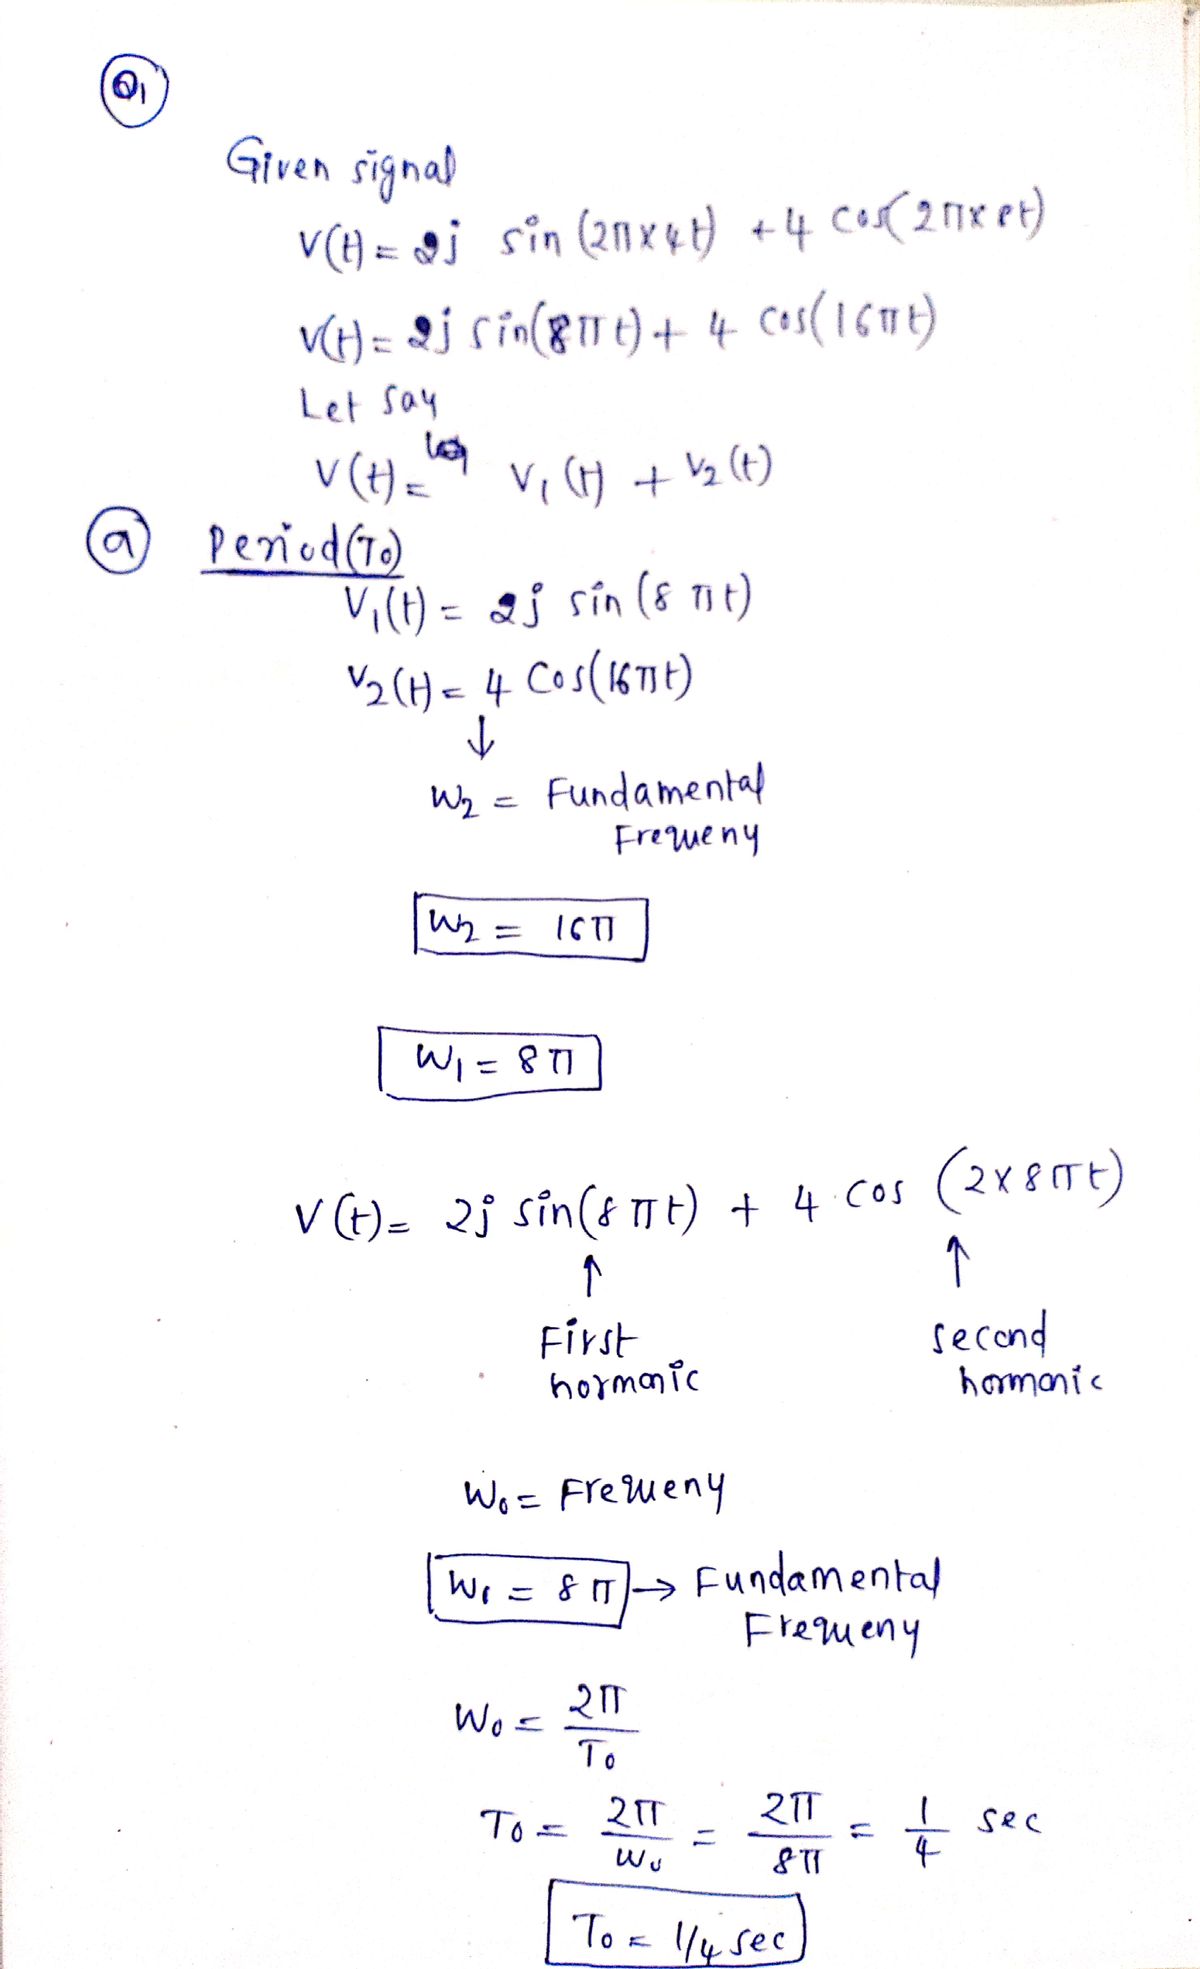 Q1
Given signal
V(t) = 2j sin (2π×4t) + 4 cos(2π×8t)
V(t) = 2j sin(8πt) + 4 cos(16πt)
Let say
V(t) = V₁(t) + V₂(t)
(a) Period(T₀)
V₁(t) = 2j sin (8πt)
V₂(t) = 4 Cos(16πt)
↓
W₂ = Fundamental
Frequeny
W₂ = 16π
W₁ = 8π
V(t) = 2j sin(8πt) + 4 cos (2×8πt)
↑ ↑
First second
hormonic hormonic
W₀ = Frequeny
W₁ = 8π → Fundamental
Frequeny
W₀ = 2π/T₀
T₀ = 2π/W₀ = 2π/8π = 1/4 sec
T₀ = 1/4 sec